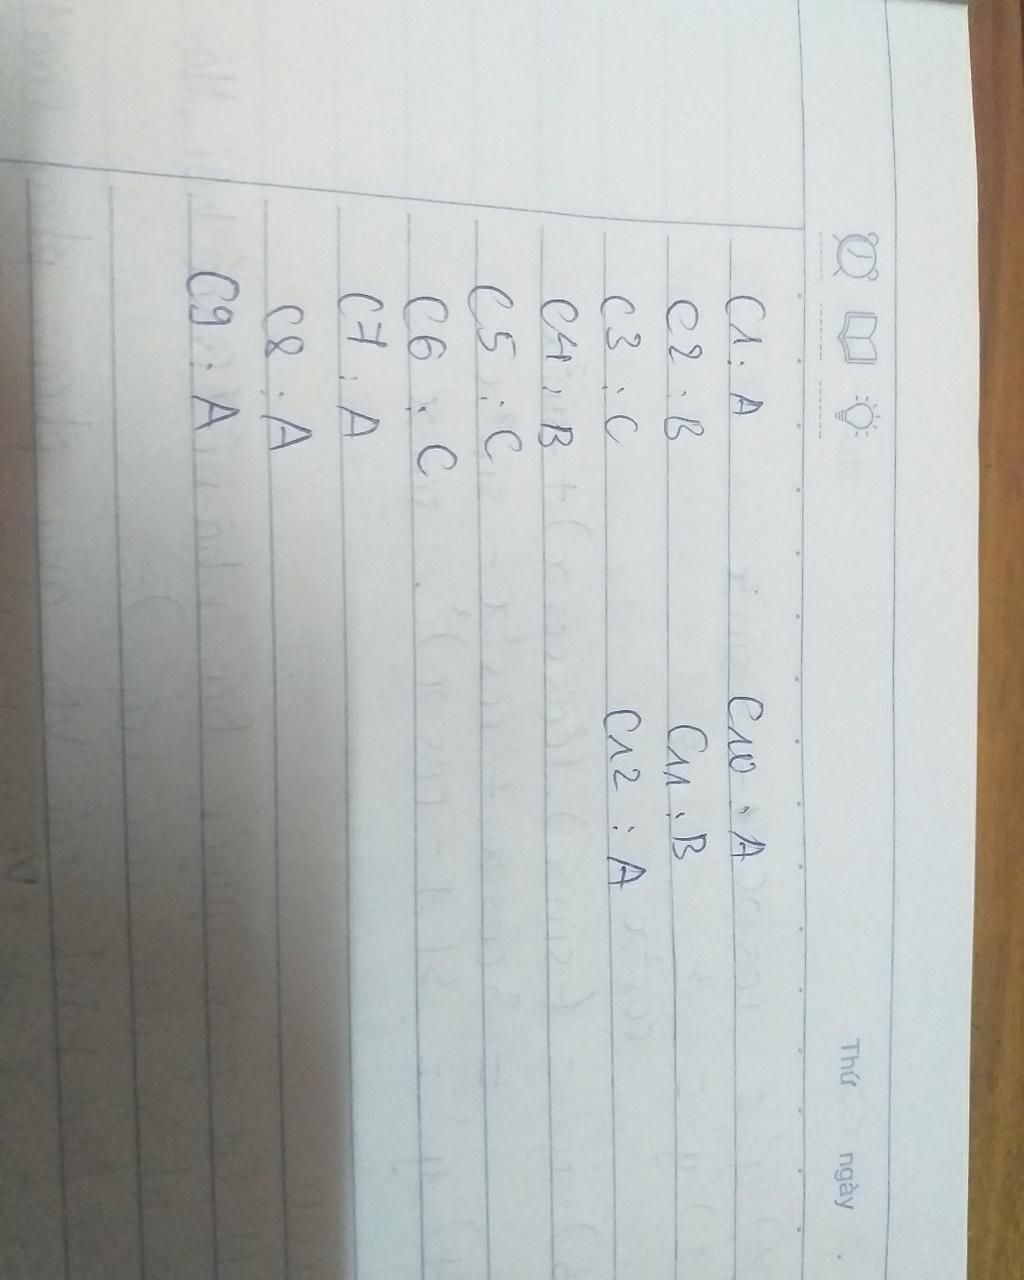 Thứ ngày
C1: A
C2: B
C3: C
C4: B
C5: C
C6: C
C7: A
C8: A
C9: A
C10: A
C11: B
C12: A